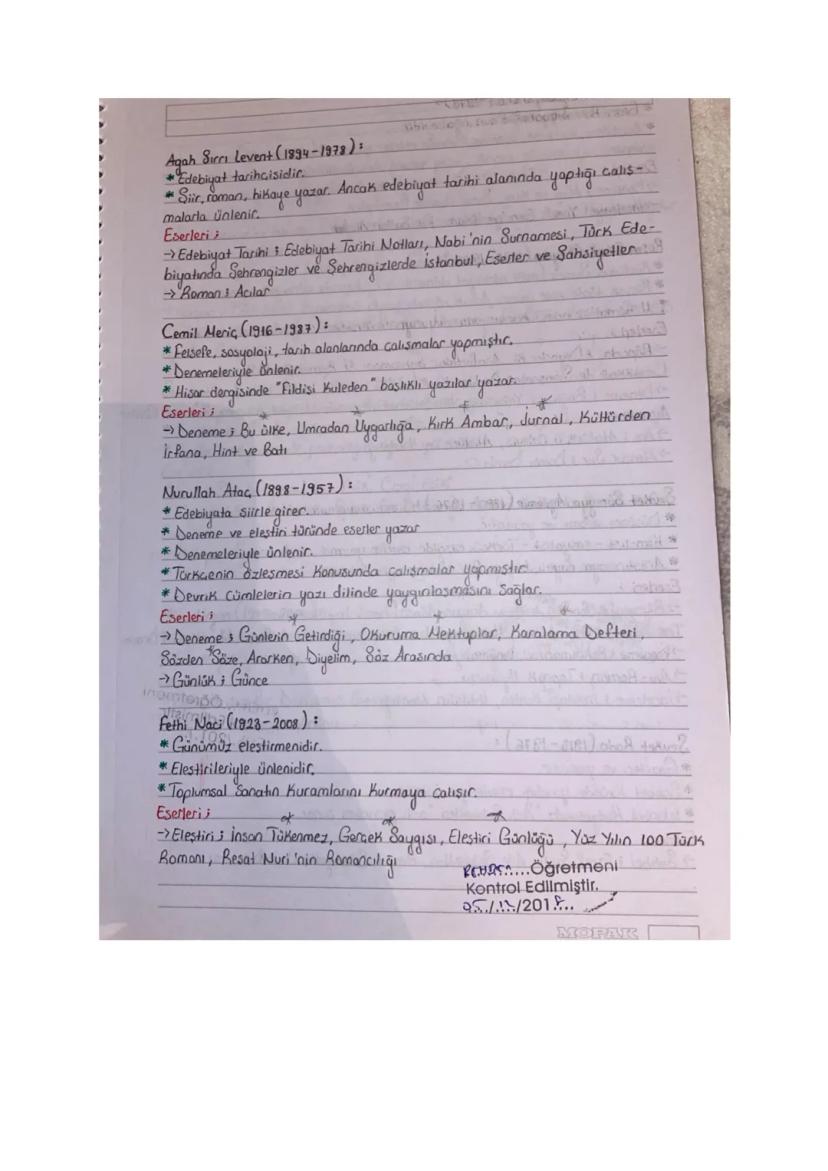 Agah Sırrı Levent (1894-1978):
* Edebiyat tarihçisidir.
* Şiir, roman, hikaye yazar. Ancak edebiyat tarihi alanında yaptığı çalış-
malarla ünlenir.
Eserleri;
→ Edebiyat Tarihi; Edebiyat Tarihi Notları, Nabi'nin Surnamesi, Türk Ede-
biyatında Şehrengizler ve Şehrengizlerde İstanbul, Eserler ve Şahsiyetler
→ Roman; Acılar
Cemil Meriç (1916-1987):
* Felsefe, sosyoloji, tarih alanlarında çalışmalar yapmıştır.
* Denemeleriyle ünlenir.
* Hisar dergisinde "Fildişi Kuleden" başlıklı yazılar yazar.
Eserleri;
→ Deneme; Bu Ülke, Umradan Uygarlığa, Kırk Ambar, Jurnal, Kültürden
İrfana, Hint ve Batı
Nurullah Ataç (1898-1957):
* Edebiyata şiirle girer.
* Deneme ve eleştiri türünde eserler yazar
* Denemeleriyle ünlenir.
* Türkçenin özleşmesi konusunda çalışmalar yapmıştır
* Devrik cümlelerin yazı dilinde yaygınlaşmasını sağlar.
Eserleri;
→ Deneme; Günlerin Getirdiği, Okuruma Mektuplar, Karalama Defteri,
Sözden Söze, Ararken, Diyelim, Söz Arasında
→ Günlük; Günce
Fethi Naci (1923-2008):
* Günümüz eleştirmenidir.
* Eleştirileriyle ünlenidir.
* Toplumsal Sanatın Kuramlarını Kurmaya çalışır.
Eserleri;
→ Eleştiri; İnsan Tükenmez, Gerçek Saygısı, Eleştiri Günlüğü, Yüz Yılın 100 Türk
Romanı, Reşat Nuri'nin Romancılığı
Öğretmeni
Kontrol Edilmiştir.
MOPAK